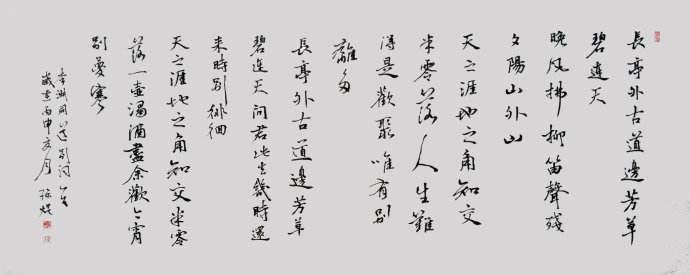 長亭外古道邊芳草
碧連天
晚风拂柳笛聲残
夕陽山外山
天之涯地之角知交
半零落人生難
得是歡聚唯有别
離多
長亭外古道邊芳草
碧連天問君此去幾時還
来時别徘徊
天之涯地之角知交半零
落一壶濁酒盡余歡今宵
别夢寒
李叔同送别词
歲在丙申